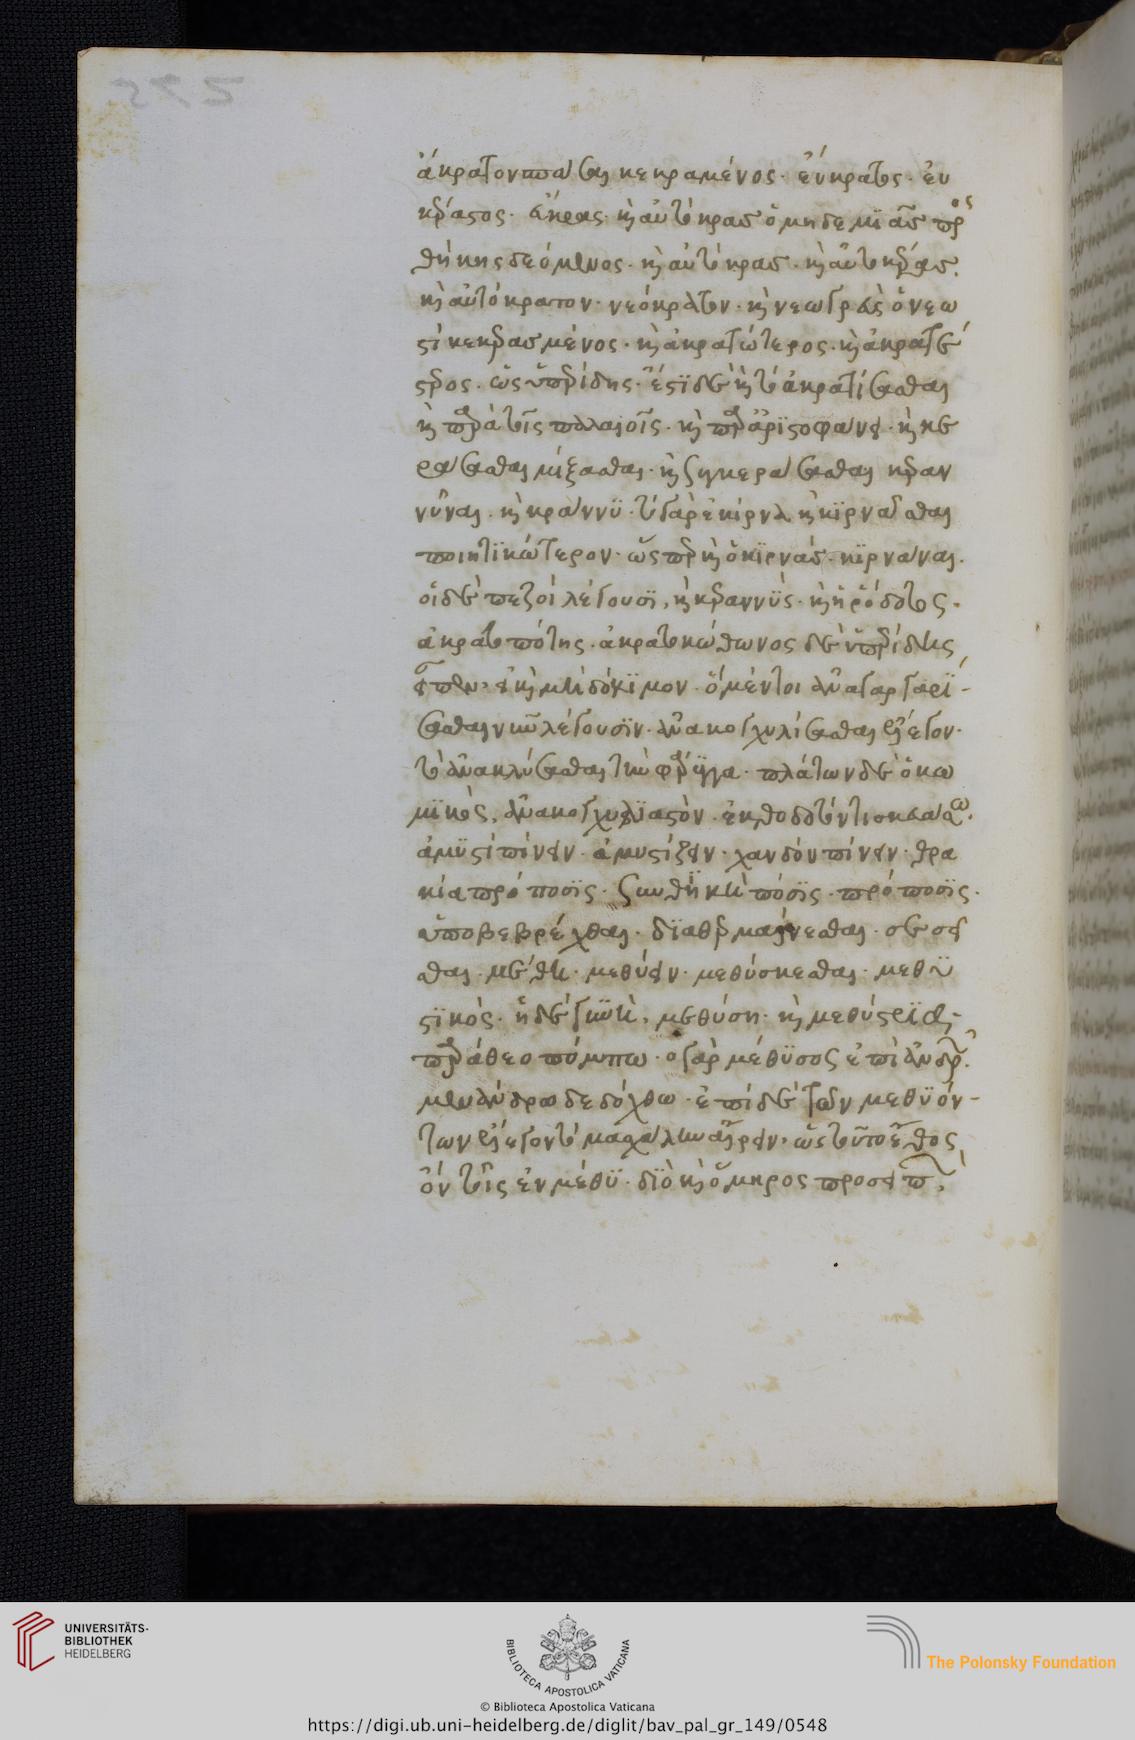 ἄκρατον πᾶσι κεκραμένος· εὔκρατος· εὐ
κέραστος· εὔκρας· καὶ αὐτόκρας ὁ μηδεμιᾶς προσ
θήκης δεόμενος· καὶ αὐτόκρας· καὶ αὐτοκέρας.
καὶ αὐτόκρατον· νεόκρατον· καὶ νεωκράς ὁ νεω
στὶ κεκερασμένος· καὶ ἀκρατώτερος· καὶ ἀκρατέ
στερος· ὡς ὑπερίδης· ἔστι δὲ καὶ τὸ ἀκρατίσασθαι
καὶ παρὰ τοῖς παλαιοῖς· καὶ παρὰ ἀριστοφάνει· καὶ κε
ράσασθαι μίξασθαι· καὶ συγκεράσασθαι κεραν
νύναι· καὶ κραννύ· τὸ γὰρ ἐκίρνα καὶ κιρνᾶσθαι
ποιητικώτερον· ὥσπερ καὶ ὁ κιρνάς· κιρνάναι.
οἱ δὲ πεζοὶ λέγουσι, καὶ κεραννύς· καὶ ἡρόδοτος·
ἀκρατοπότης· ἀκρατοκώθωνος δὲ ὑπερίδης
εἶπεν, εἰ καὶ μὴ δόκιμον· ὃ μέντοι ἀναγαργαρί-
σασθαι νῦν λέγουσιν· ἀνακογχυλίσασθαι ἔλεγον·
τὸ ἀνακλύσασθαι τὴν φάρυγγα· πλάτων δὲ ὁ κω
μικὸς, ἀνακογχυλιαστὸν
ἀμυστὶ πίνειν· ἀμυστίζειν· χανδὸν πίνειν· θρα
κία πρόποσις· συνθήκη πόσις· πρόποσις·
ὑποβεβρέχθαι· διαθερμαίνεσθαι· σεσεῖ
σθαι· μέθη· μεθύειν· μεθύσκεσθαι· μεθυ
στικός· ἡ δὲ γυνὴ, μεθύση· καὶ μεθύστρια,
παρὰ θεοπόμπω· ὁ γὰρ μέθυσος ἐπὶ ἀνδρῶν.
μενάνδρω δεδόχθω· ἐπὶ δὲ τῶν μεθυόν-
των ἔλεγον τὸ μασχάλην αἴρειν, ὡς τοῦτο ἔθος
ὂν τοῖς ἐν μέθυ· διὸ καὶ ὅμηρος προσεῖπεν,
UNIVERSITÄTS-
BIBLIOTHEK
HEIDELBERG
BIBLIOTECA APOSTOLICA VATICANA
The Polonsky Foundation
© Biblioteca Apostolica Vaticana
https://digi.ub.uni-heidelberg.de/diglit/bav_pal_gr_149/0548